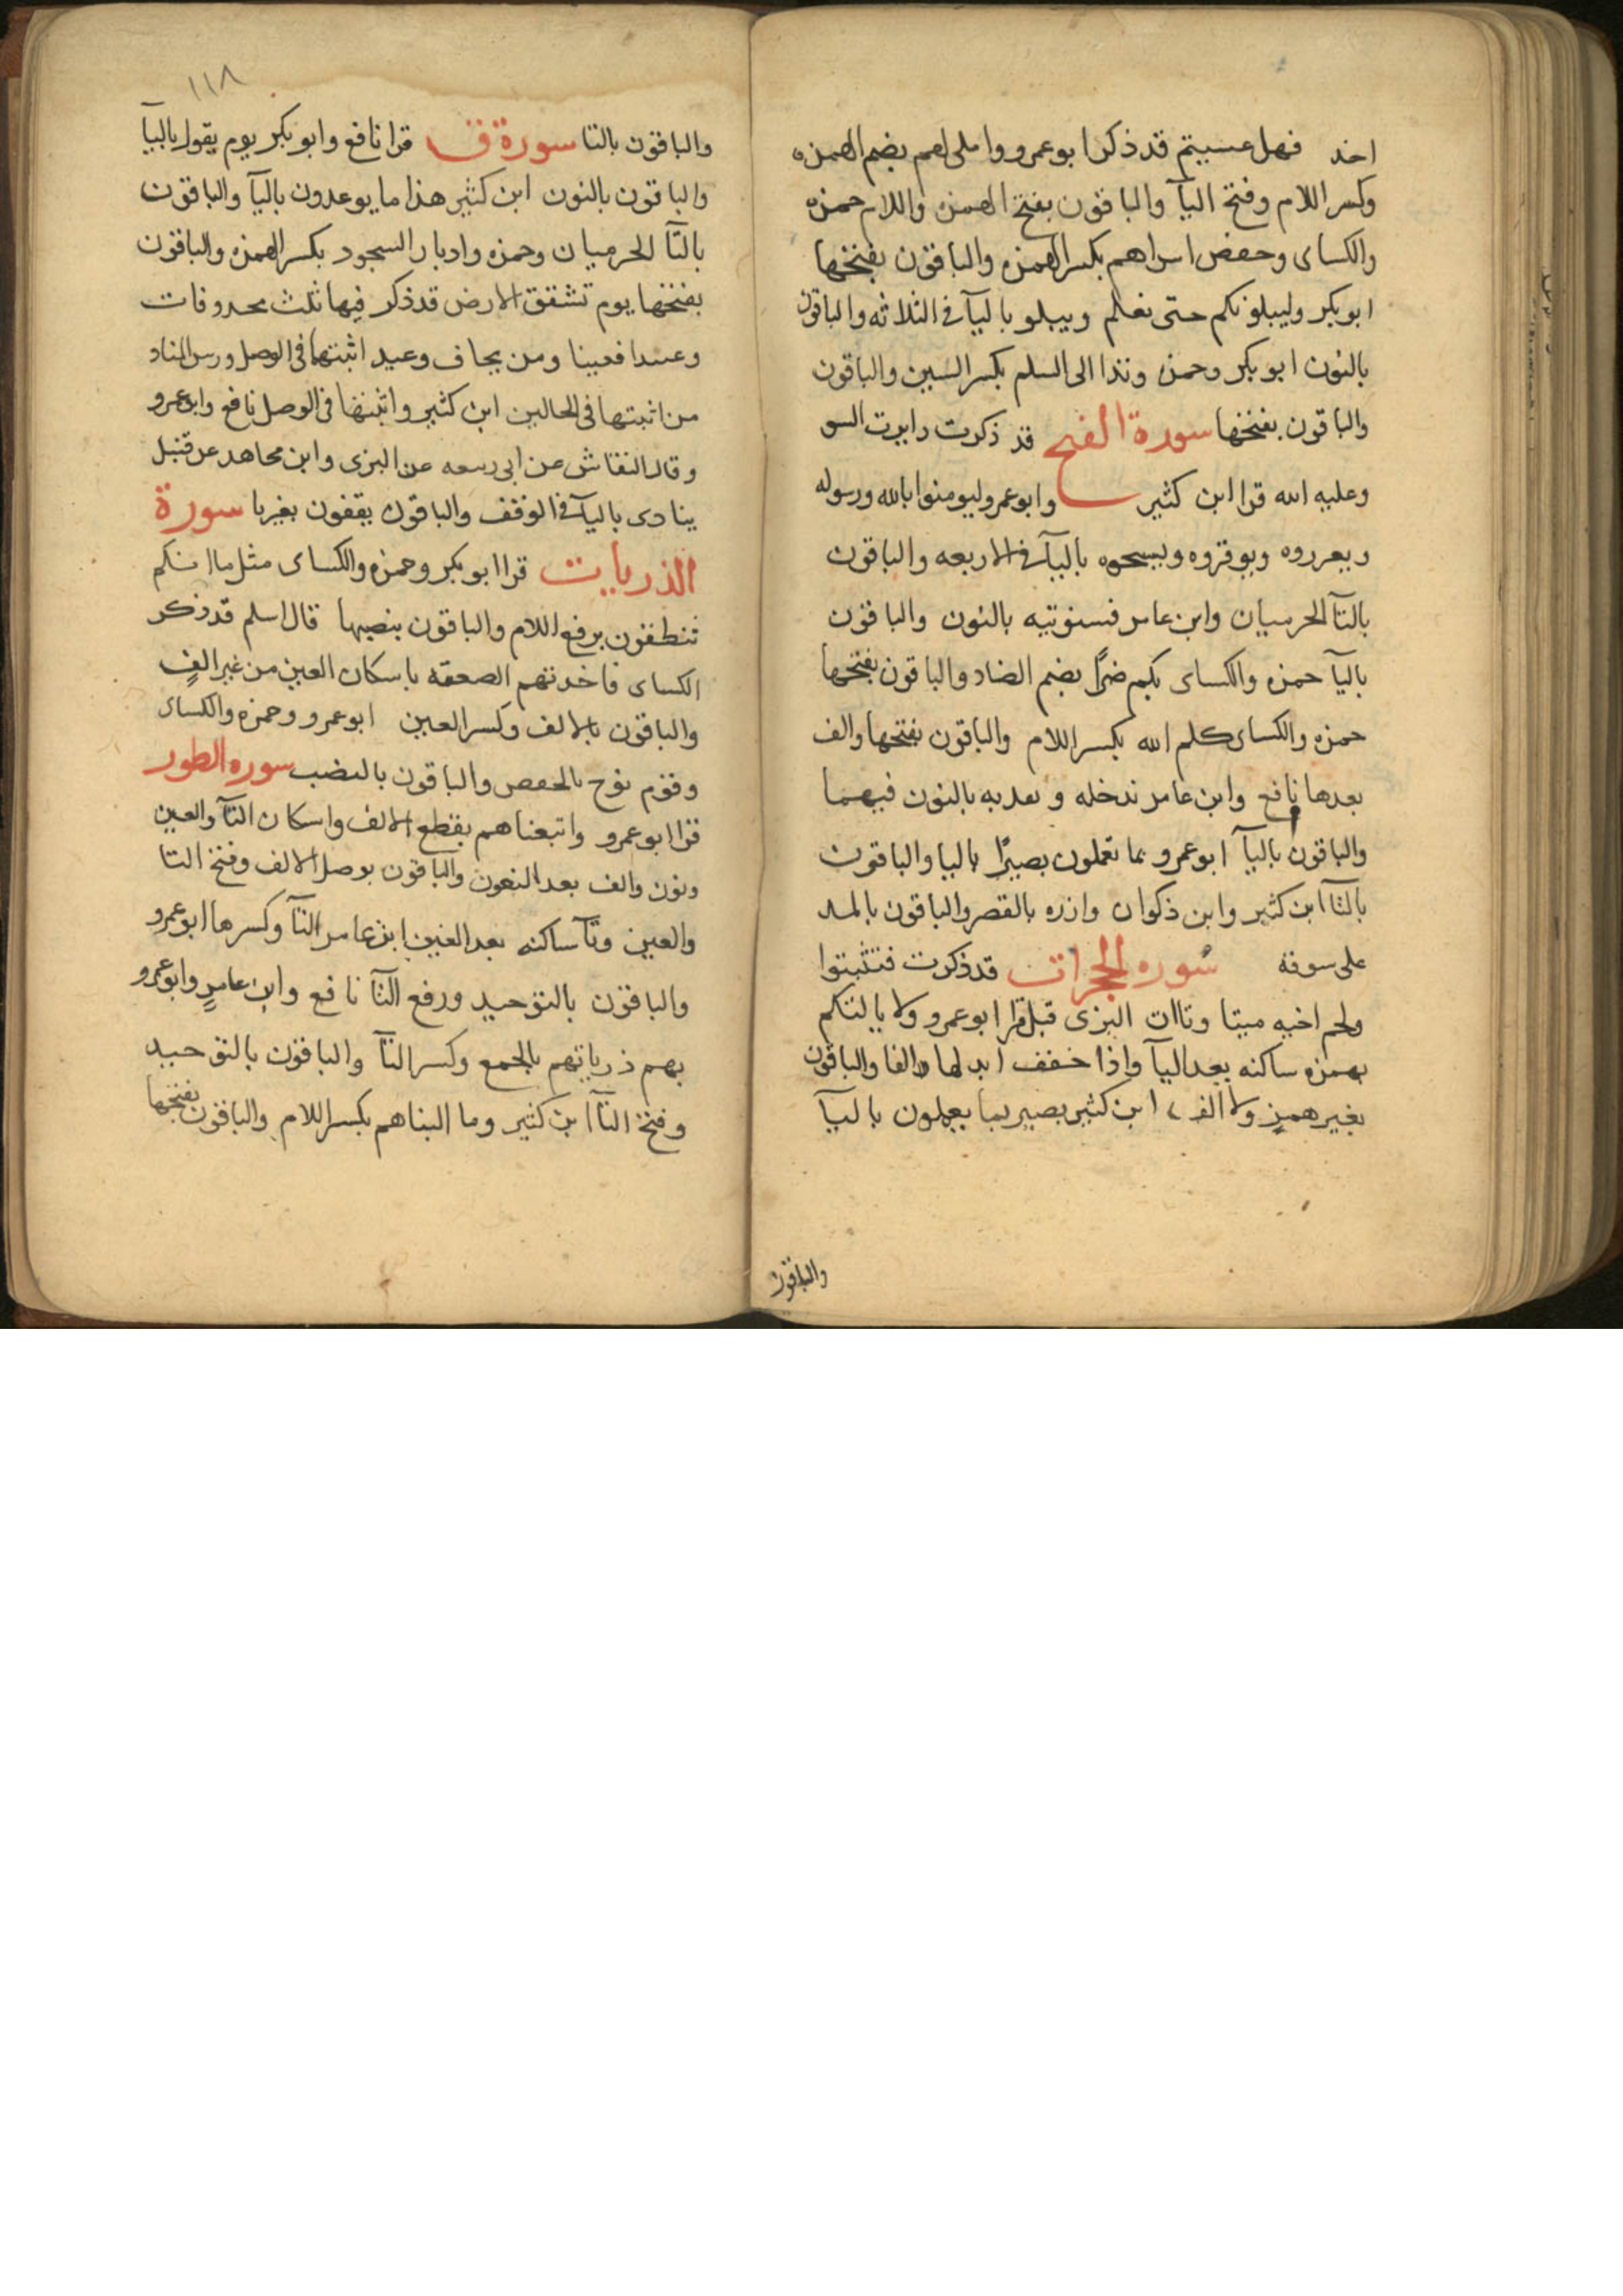 اخذ فهل عسيتم قد ذكر ابو عمرو واملى لهم بضم الهمزه
وكسر اللام وفتح اليآ والباقون بفتح الهمزه واللام حمزه
والكساى وحفص اسراهم بكسر الهمزه والباقون بفتحها
ابو بكر وليبلونكم حتى يعلم ويبلو باليآ فى الثلاثه والباقون
بالنون ابو بكر وحمزه وتدعوا الى السلم بكسر السين والباقون
والباقون بفتحها سورة الفتح قد ذكرت دايرت السو
وعليه الله قرا ابن كثير وابو عمرو ليومنوا بالله ورسوله
ويعزروه ويوقروه ويسبحوه باليآ فى الاربعه والباقون
بالتآ الحرميان وابن عامر فسنوتيه بالنون والباقون
باليآ حمزه والكساى بكم ضرًا بضم الضاد والباقون بفتحها
حمزه والكساى كلم الله بكسر اللام والباقون بفتحها والف
بعدها نافع وابن عامر ندخله ونعذبه بالنون فيهما
والباقون باليآ ابو عمرو بما تعملون بصيرًا باليا والباقون
بالتآ ابن كثير وابن ذكوان وازره بالقصر والباقون بالمد
على سوقه سوره الحجرات قد ذكرت فتثبتوا
ولحم اخيه ميتا وتاات البزى قبل قرا ابو عمرو ولا يالتكم
بهمزه ساكنه بعد اليآ واذا خفف ابدلها الفا والباقون
بغير همز ولا الف ابن كثير بصير بما يعملون باليآ
والباقون
١١٨
والباقون بالتا سورة ق قرا نافع وابو بكر يوم يقول باليآ
والباقون بالنون ابن كثير هذا ما يوعدون باليآ والباقون
بالتآ الحرميان وحمزه وادبار السجود بكسر الهمزه والباقون
بفتحها يوم تشقق الارض قد ذكر فيها ثلث محذوفات
وعيد افعيينا ومن يخاف وعيد اثبتها فى الوصل ورس المناد
من اثبتها فى الحالين ابن كثير واثبتها فى الوصل نافع وابو عمرو
وقال النقاش عن ابى ربيعه عن البزى وابن مجاهد عن قنبل
ينادى باليآ فى الوقف والباقون يقفون بغير يا سورة
الذريات قرا ابو بكر وحمزه والكساى مثل ما انكم
تنطقون برفع اللام والباقون بنصبها قال سلم قد ذكر
الكساى فاخذتهم الصعقه باسكان العين من غير الفٍ
والباقون بالالف وكسر العين ابو عمرو وحمزه والكساى
وقوم نوح بالخفض والباقون بالنصب سوره الطور
قرا ابو عمرو واتبعناهم بقطع الالف واسكان التآ والعين
ونون والف بعد النون والباقون بوصل الالف وفتح التا
والعين وتآ ساكنه بعد العين ابن عامر التآ وكسرها ابو عمرو
والباقون بالتوحيد ورفع التآ نافع وابن عامرٍ وابو عمرو
بهم ذرياتهم بالجمع وكسر التآ والباقون بالتوحيد
وفتح التآ ابن كثير وما التناهم بكسر اللام والباقون بفتحها